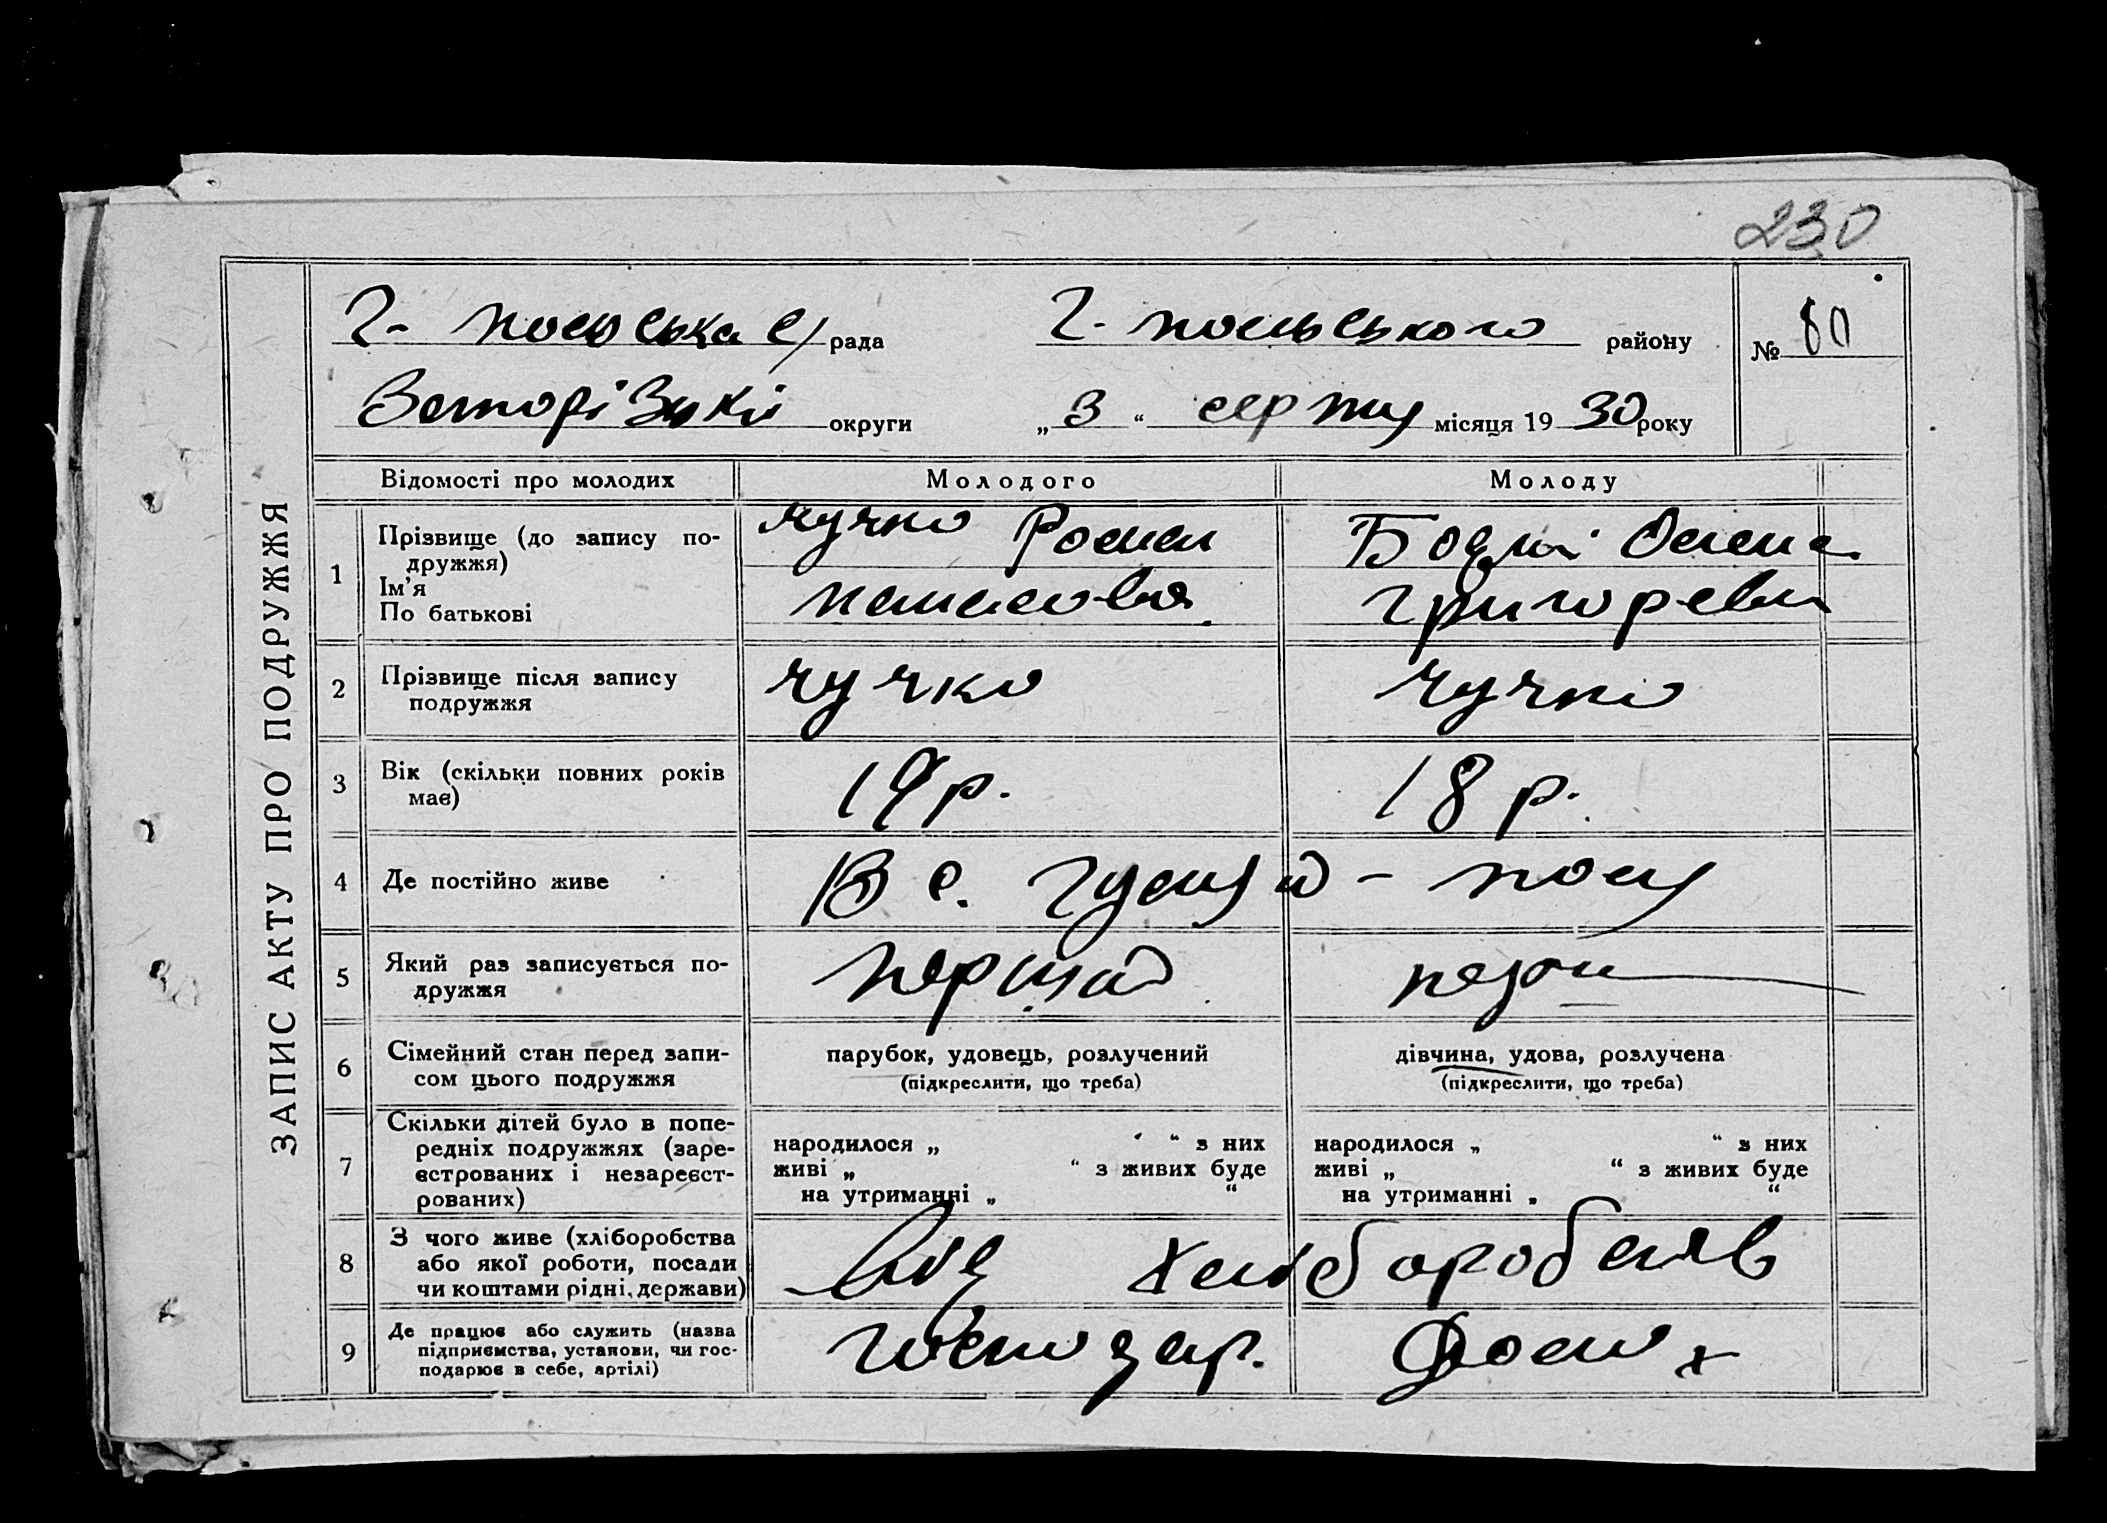 230
ЗАПИС АКТУ ПРО ПОДРУЖЖЯ
Г- польська с/рада Г. польського району № 80
Запорізької округи „3“ серпня місяця 1930 року
Відомості про молодих Молодого Молоду
1 Прізвище (до запису по-
дружжя)
Ім’я
По батькові
Чучко Роман
Панасовіч
Григоревн
2 Прізвище після запису
подружжя
Чучко Чучко
3 Вік (скільки повних років
має)
19 р. 18 р.
4 Де постійно живе
В с. Гуляй - полу
5 Який раз записується по-
дружжя
перший
6 Сімейний стан перед запи-
сом цього подружжя
парубок, удовець, розлучений
(підкреслити, що треба)
дівчина, удова, розлучена
(підкреслити, що треба)
7 Скільки дітей було в попе-
редніх подружжях (заре-
єстрованих і незареєст-
рованих)
народилося „ “ з них
живі „ “ з живих буде
на утриманні „ “
народилося „ “ з них
живі „ “ з живих буде
на утриманні „ “
8 З чого живе (хліборобства
або якої роботи, посади
чи коштами рідні, держави)
від
9 Де працює або служить (назва
підприємства, установи, чи гос-
подарює в себе, артілі)
господар.